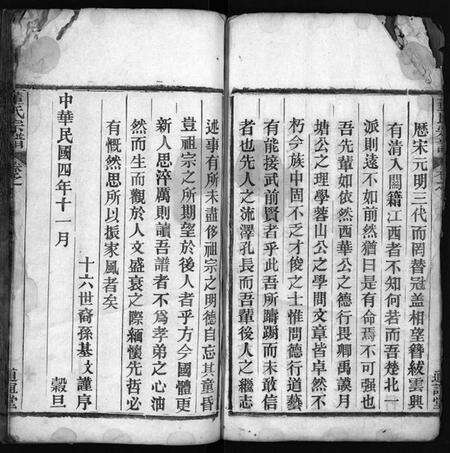 歷宋元明三代而罔替冠盖相望簪紱雲興
有清入闗籍江西者不知何若而吾楚北一
派則遠不如前然猶曰是有命焉不可強也
吾先輩如依然西華公之德行畏
塘公之理學蓉山公之學問文章皆卓然不
朽今族中固不乏才俊之士惟問德行道藝
有能接武前賢者乎此吾所躊躇而未敢信
者也先人之流澤孔長而吾輩後人之繼志
述事有所未盡侈祖宗之明德自忘其童昏
豈祖宗之所期望於後人者乎方今國體更
新人思淬厲則讀吾譜者不爲孝弟之心油
然而生而觀於人文盛衰之際緬懷先哲必
有慨然思所以振家風者矣
中華民國四年十一月 穀旦
十六世裔孫基 謹序
氏宗譜